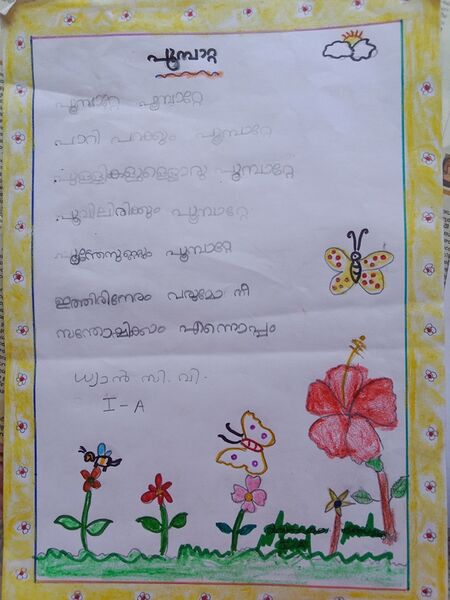 പൂമ്പാറ്റ
പൂമ്പാറ്റേ പൂമ്പാറ്റേ
പാറി പറക്കും പൂമ്പാറ്റേ
പുള്ളികളുള്ളൊരു പൂമ്പാറ്റേ
പൂവിലിരിക്കും പൂമ്പാറ്റേ
പൂന്തേനുണ്ണും പൂമ്പാറ്റേ
ഇത്തിരിനേരം വരുമോ നീ
സന്തോഷിക്കാം എന്നൊപ്പം
ധ്യാൻ സി. വി.
I - A